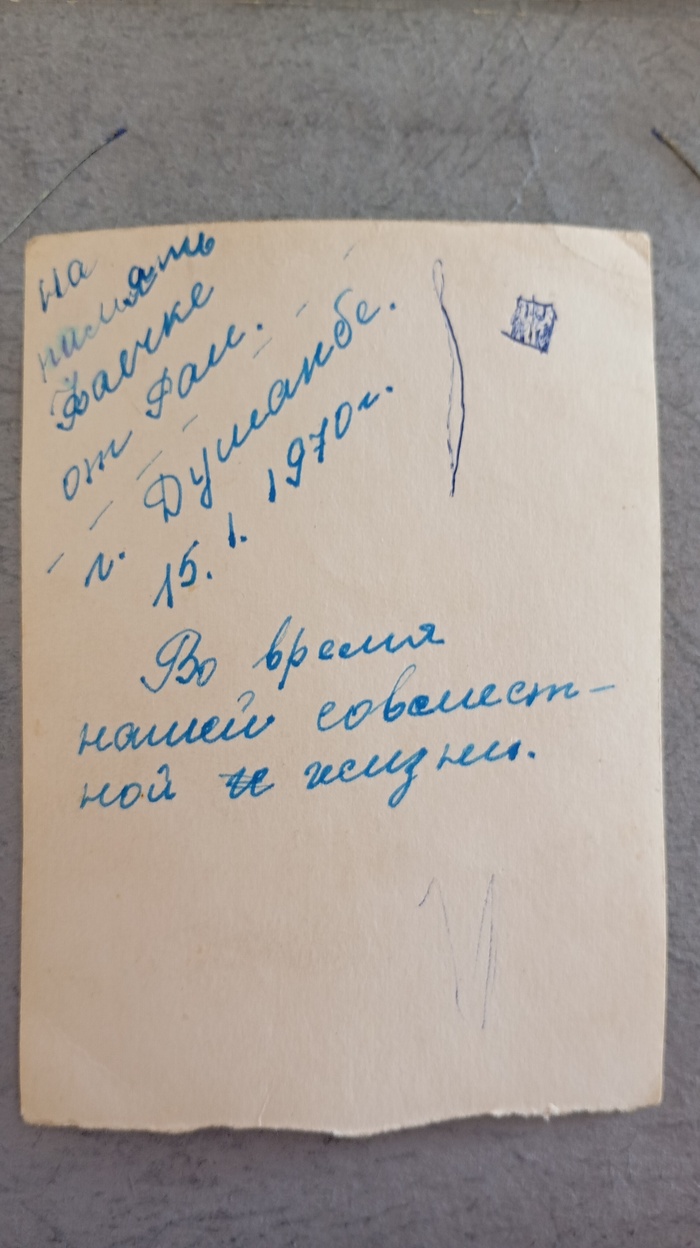 на
память
от Фаи.
г. Душанбе.
15. 1. 1970 г.
Во время
нашей совмест-
ной жизни.